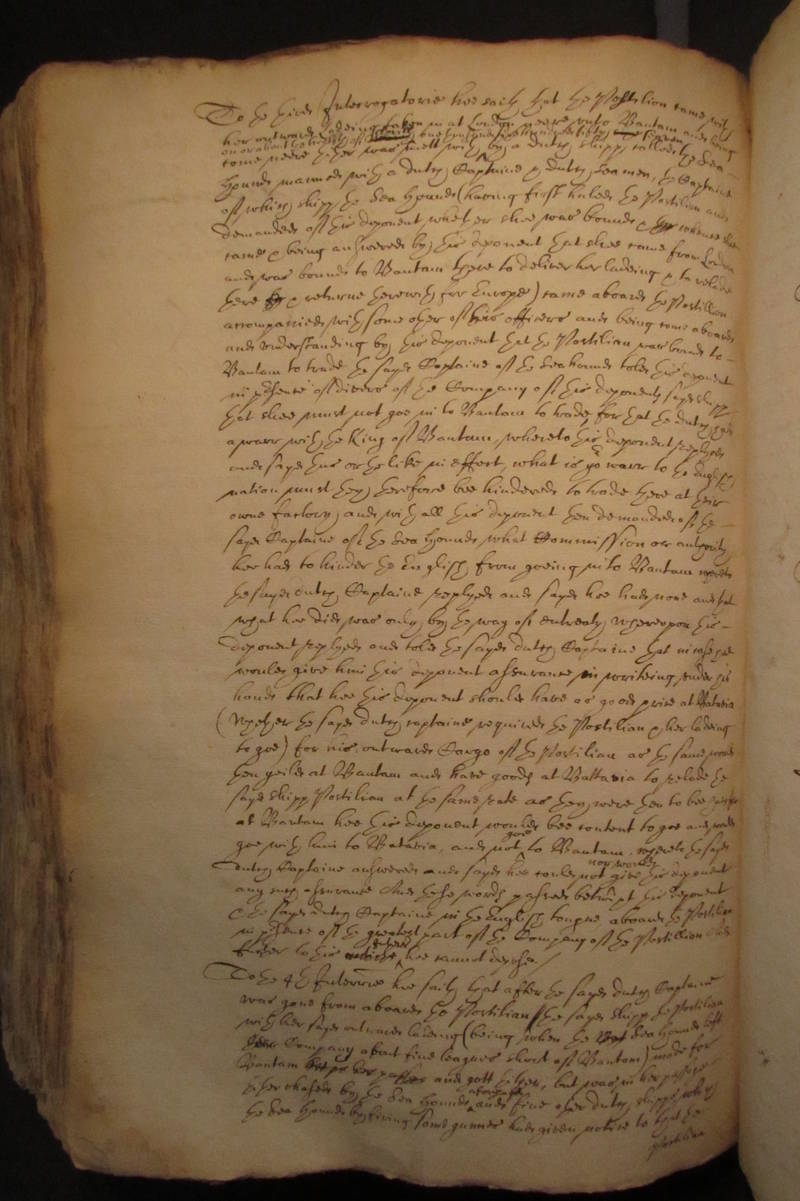 To the third Interrogatorie hee saith that the Postilion came with
her outward ladeing taken in at London neere unto Bantam and being
come neere thither was mett with by a dutch shipp called the Sea
hounde manned with a dutch Captaine & dutch seamen, the Captaine
of which shipp the Sea hounde (having first haled the Postilion and
demanded of this deponent whether shee was bounde & whence shee
came & being answered by this deponent that shee came from London
and was bounde to Bantam there to deliver her ladeing & to relade
there & returne therewith for Europe) came aboard the Postilion
accompanied with some other of his officers and being come aboard
and understanding by this deponent that the Postilion was bound to
Bantam to trade the sayd Captaine of the Seahounde told this deponent
in presence of divers of the Company of this deponents sayd shipp
that shee must not goe in to Bantam to trade, for that the dutch had
a warr with the King of Bantam, whereto this deponent replyed
and sayd thus or the like in effect, what is yo warr to the English
nation must they therefore bee hindered to trade there at their
owne factory, and with all this deponent then demanded of the
sayd Captaine of the Sea hounde what Commission or authority
hee had to hinder the English from goeing into Bantam whereto
the sayd dutch Captaine replyed and sayd hee had none and that
what hee did was only by the way of entreaty whereupon this
deponent replyed and told the sayd dutch Captaine that in case hee
would give him this deponent assurance in writeing under his
hand that hee this deponent should have as good price at Batavia
(whether the sayd dutch captaine required the Postilian & her ladeing
to goe) for his outward Cargo of the Postilian as the same would
then yeild at Bantam and have goods at Battavia to relade the
sayd shipp Postilian at the same rate as they were then to bee
at Bantam hee this deponent would bee content to goe and would
goe with him to Batavia, and not goe to Bantam, whereto the sayd
dutch Captaine answered and sayd hee could not nor would give this deponent
any such assurance And these words passed betwixt this deponent
& the sayd dutch Captaine in the English tongue aboard the Postilion
in presence of the greatest part of the Company of the Postillion And
further to this hee cannot depose /
To the 4th Interrie hee saith that after the sayd dutch Captaine
was gone from aboard the Postilian the sayd shipp the Postilian
with her sayd outward ladeing (being when the Sea hounde left
her Company about five leagues short of Bantam) made for
Bantam and gott thither, but was in her passage
thither chased by the Sea hounde and five other dutch shipps whom
the Sea hounde by fireing some gunnes had given notice to that the
Postilian